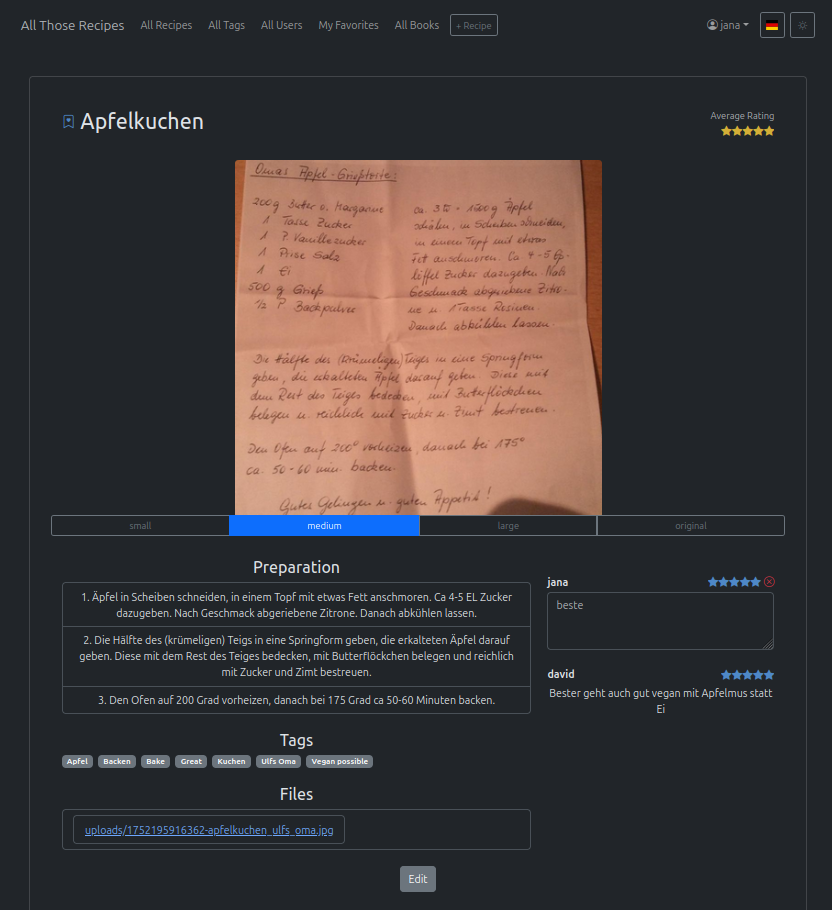 All Those Recipes All Recipes All Tags All Users My Favorites All Books + Recipe jana
Apfelkuchen
Average Rating
Omas Äpfel-Grießtorte:
200g Butter o. Margarine
1 Tasse Zucker
1 P. Vanillezucker
1 Prise Salz
1 Ei
500 g Grieß
1/2 P Backpulver
ca. 3 - 1500 g Äpfel
schälen, in Scheiben schneiden,
in einem Topf mit etwas
Fett anschmoren. Ca. 4-5 Eß-
löffel Zucker dazugeben. Nach
Geschmack abgeriebene Zitro-
ne u. 1 Tasse Rosinen.
Danach abkühlen lassen.
Die Hälfte des (krümeligen) Teiges in eine Springform
geben, die erkalteten Äpfel darauf geben. Diese mit
dem Rest des Teiges bedecken, mit Butterflöckchen
belegen u. reichlich mit Zucker u. Zimt bestreuen.
Den Ofen auf 200° vorheizen, danach bei 175°
ca. 50-60 min. backen.
Gutes Gelingen u. guten Appetit!
small medium large original
Preparation
1. Äpfel in Scheiben schneiden, in einem Topf mit etwas Fett anschmoren. Ca 4-5 EL Zucker
dazugeben. Nach Geschmack abgeriebene Zitrone. Danach abkühlen lassen.
2. Die Hälfte des (krümeligen) Teigs in eine Springform geben, die erkalteten Äpfel darauf
geben. Diese mit dem Rest des Teiges bedecken, mit Butterflöckchen belegen und reichlich
mit Zucker und Zimt bestreuen.
3. Den Ofen auf 200 Grad vorheizen, danach bei 175 Grad ca 50-60 Minuten backen.
Tags
Apfel Backen Bake Great Kuchen Ulfs Oma Vegan possible
Files
uploads/1752195916362-apfelkuchen_ulfs_oma.jpg
jana
beste
david
Bester geht auch gut vegan mit Apfelmus statt
Ei
Edit